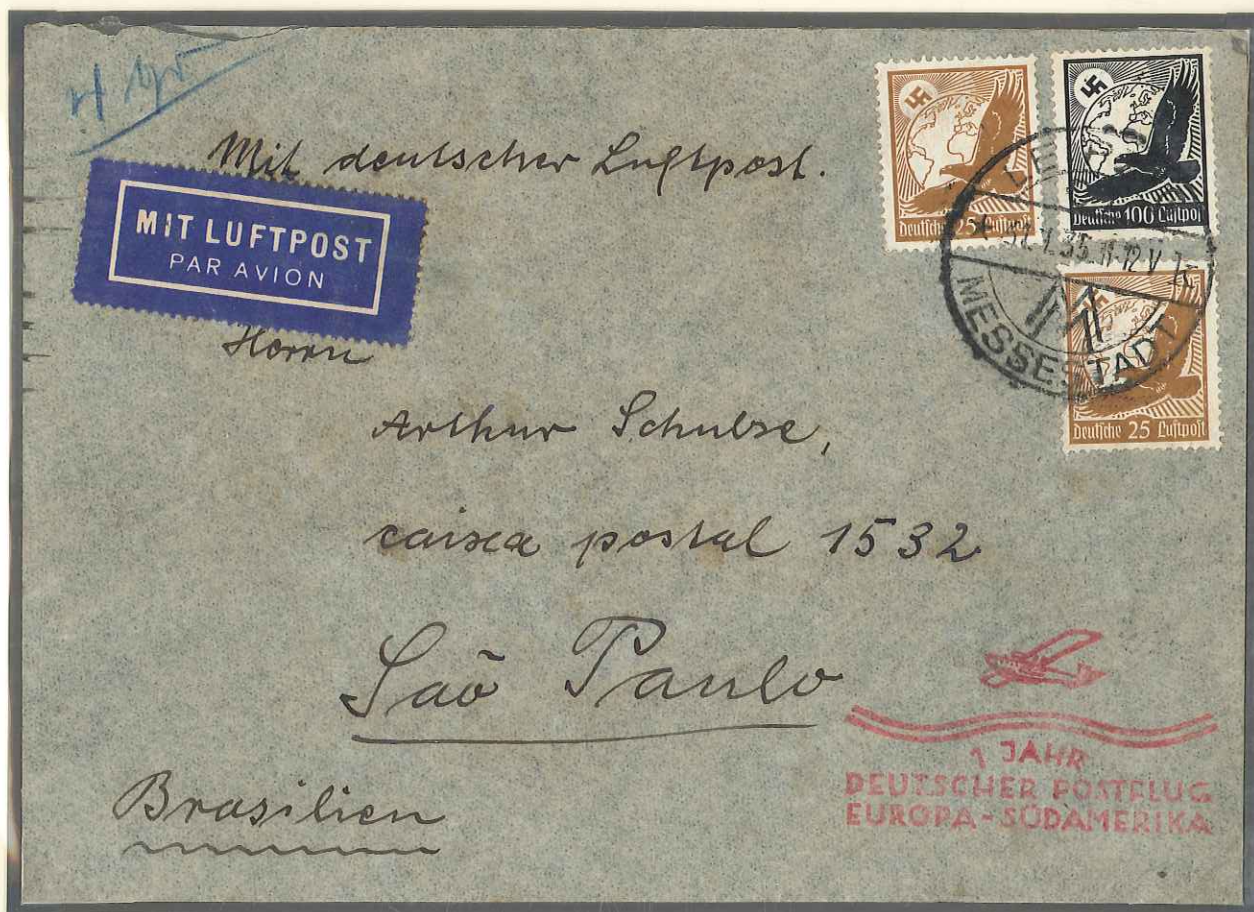 Mit deutscher Luftpost.
MIT LUFTPOST
PAR AVION
Deutsche 25 Luftpost
Deutsche 100 Luftpost
Deutsche 25 Luftpost
35.11-12 V
MESSESTADT
Herrn
Arthur Schulze,
caixa postal 1532
São Paulo
Brasilien
1 JAHR
DEUTSCHER POSTFLUG
EUROPA-SÜDAMERIKA